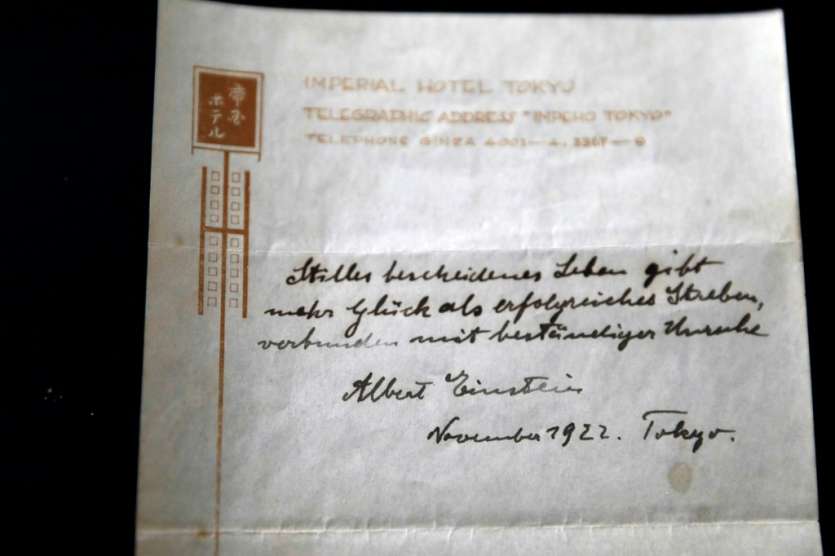 帝国
ホテル
IMPERIAL HOTEL TOKYO
TELEGRAPHIC ADDRESS "IMPEHO TOKYO"
TELEPHONE GINZA 4001—4,
Stilles bescheidenes Leben gibt
mehr Glück als erfolgreiches Streben,
verbunden mit beständiger Unruhe
Albert Einstein
November 1922. Tokyo.